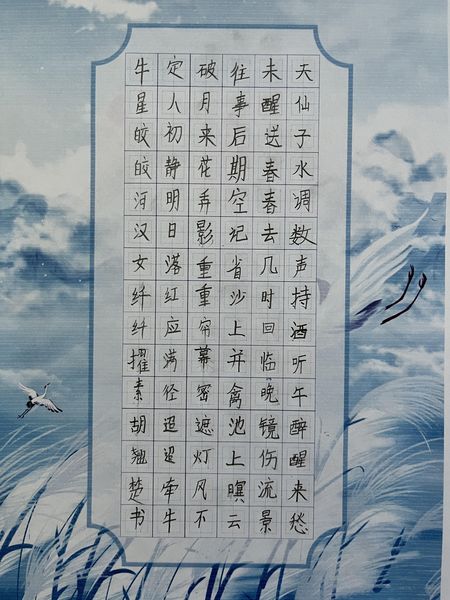 天仙子水调数声持酒听午醉醒来愁
未醒送春春去几时回临晚镜伤流景
往事后期空记省沙上并禽池上暝云
破月来花弄影重重帘幕密遮灯风不
定人初静明日落红应满径迢迢牵牛
牛星皎皎河汉女纤纤擢素胡翘楚书